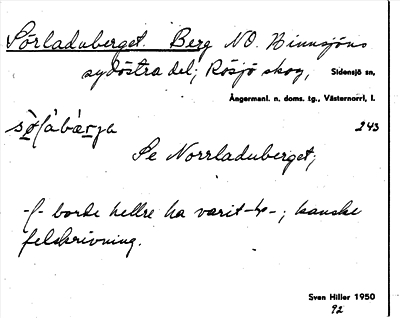 Sörladuberget. Berg NO. Binnsjöns
sydöstra del; Rösjö skog, Sidensjö sn,
Ångermanl. n. doms. tg., Västernorrl. l.
243
Se Norrladuberget;
borde hellre ha varit ; kanske
felskrivning.
Sven Hiller 1950
92